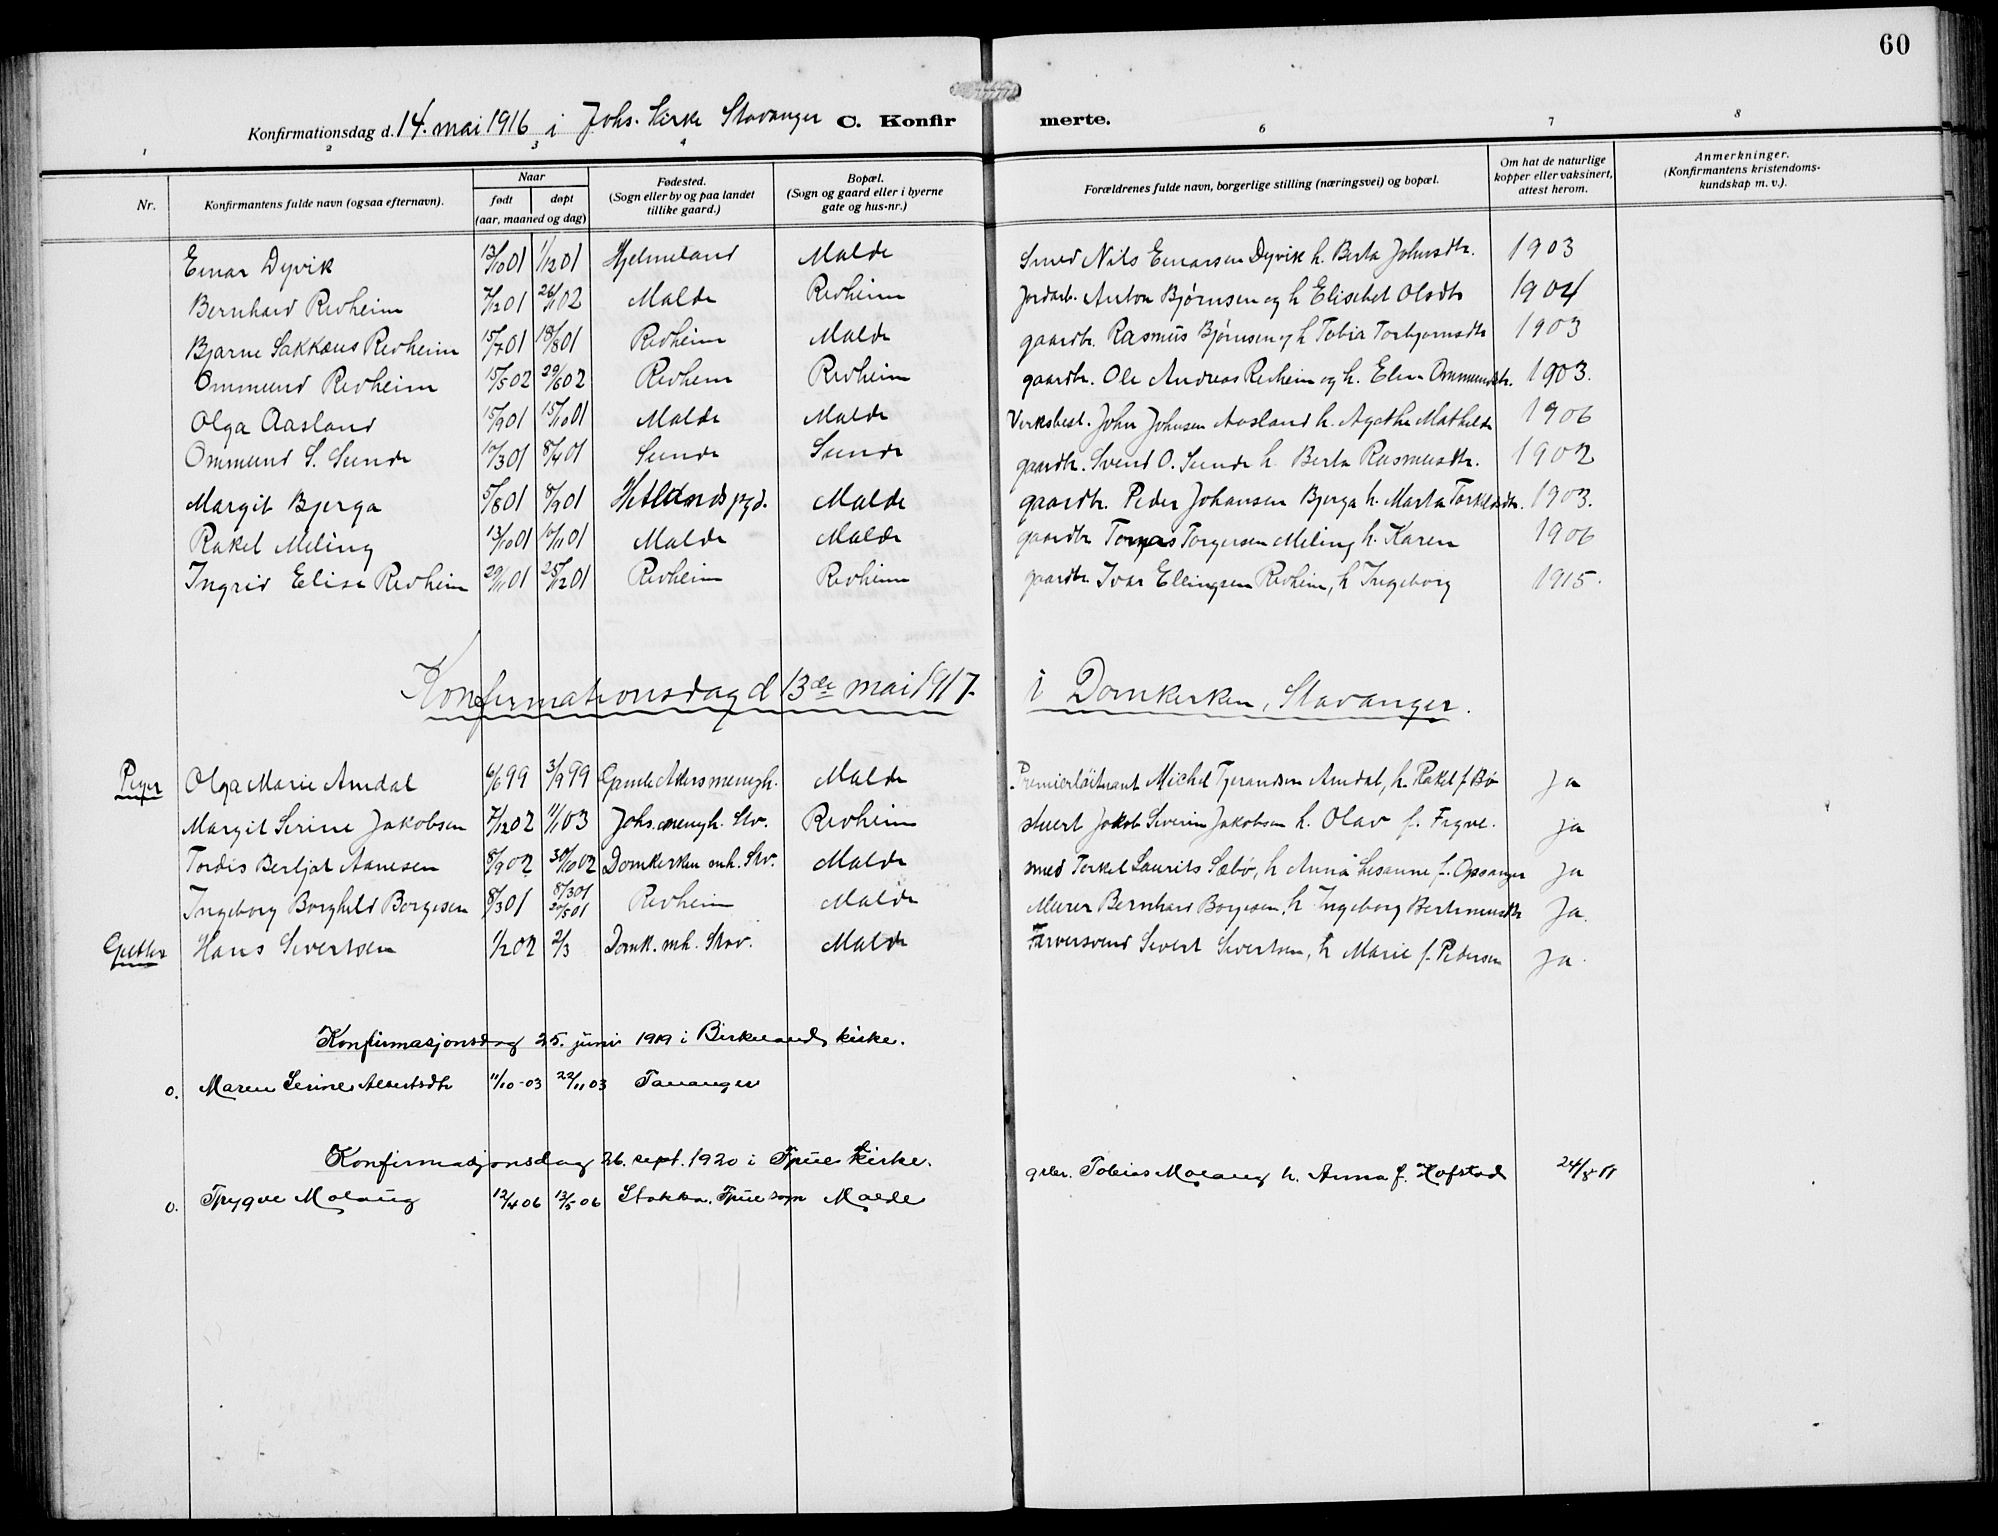 60
Konfirmationsdag d. 14. mai 1916 i Johs. Kirke Stavanger C. Konfirmerte.
1 2 3 4 6 7 8
Nr. Konfirmantens fulde navn (ogsaa efternavn). Naar født døpt (aar, maaned og dag) Fødested. (Sogn eller by og paa landet tillike gaard.) Bopæl. (Sogn og gaard eller i byerne gate og hus-nr.) Forældrenes fulde navn, borgerlige stilling (næringsvei) og bopæl. Om hat de naturlige kopper eller vaksinert, attest herom. Anmerkninger. (Konfirmantens kristendoms-kundskap m. v.).
Einar Dyvik 13/10 01 1/12 01 Hjelmeland Malde Smed Nils Einarsen Dyvik h. Berta Johnsdtr. 1903
Bernhard Revheim 7/12 01 26/1 02 Malde Revheim Jordarb. Anton Bjørnsen og h Elisebet Olsdtr 1904
Bjarne Sakkæus Revheim 15/7 01 18/8 01 Revheim Malde gaardbr. Rasmus Bjørnsen og h Tobia Torbjørnsdtr 1903
Ommund Revheim 15/5 02 29/6 02 Revheim Revheim gaardbr. Ole Andreas Revheim og h. Elen Ommundsdtr. 1903.
Olga Aasland 15/9 01 15/10 01 Malde Malde Verksbest. John Johnsen Aasland h. Agathe Mathilde 1906
Ommund S. Sunde 10/3 01 8/4 01 Sunde Sunde gaardbr. Svend O. Sunde h. Berta Rasmusdtr. 1902
Margit Bjerga 5/8 01 8/9 01 Hetlands pgd. Malde gaardbr. Peder Johansen Bjerga h. Marta Torkildsdtr. 1903.
Rakel Meling 13/10 01 10/11 01 Malde Malde gaardbr Tomas Torgersen Meling h. Karen 1906
Ingrid Elise Revheim 29/11 01 25/12 01 Revheim Revheim gaardbr. Ivar Ellingsen Revheim, h Ingeborg 1915.
Konfirmationsdag d 13de mai 1917. i Domkerken, Stavanger.
Piger Olga Marie Amdal 6/6 99 3/9 99 Gamle Akers menigh. Malde Premierløitnant Michel Tjerandsen Amdal, h. Rakel f. Bø ja
Margit Serine Jakobsen 7/12 02 11/1 03 Johs. menigh. Stv. Revheim stuert Jakob Severin Jakobsen h. Olav f. Fryve. ja
Tordis Berljot Aanesen 8/9 02 30/11 02 Domkerken mh. Stv. Malde smed Torkel Laurits Sæbø, h Anna Susanne f. Opsanger ja
Ingeborg Borghild Borgesen 8/3 01 8/3 01 20/5 01 Revheim Malde Murer Bernhard Borgesen, h Ingeborg Bertinusdtr ja.
Gutter Hans Sivertsen 1/2 02 2/3 Domk. mh. Stav. Malde Farversvend Sivert Sivertsen, h Marie f. Pedersen ja.
Konfirmasjonsdag 25. juni 1919 i Birkelands kirke.
o. Maren Serine Albertsdtr 11/10-03 22/11 03 Tananger
Konfirmasjonsdag 26. sept. 1920 i Frue kirke.
o. Trygve Molaug 12/4 06 13/5 06 Stokka, Frue sogn Malde grbr. Tobias Molaug h. Anna f. Hofstad 24/8 11